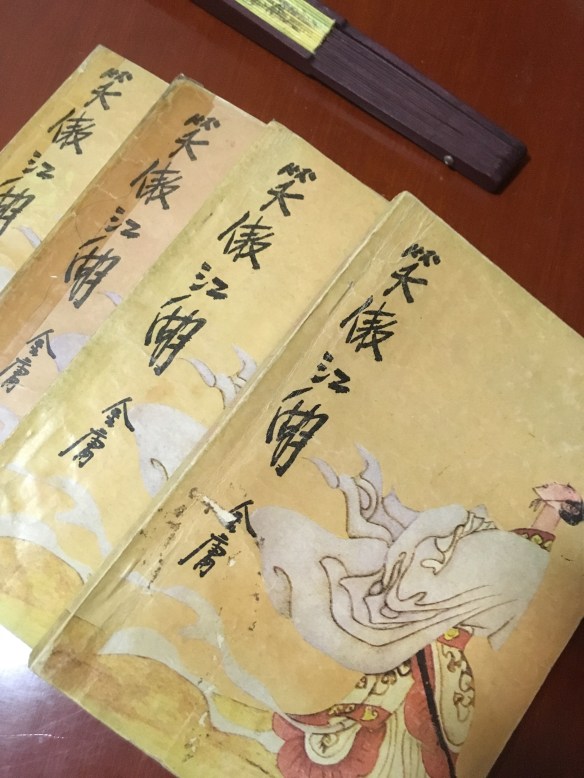 笑傲江湖
笑傲江湖
金庸
笑傲江湖
金庸
笑傲江湖
金庸